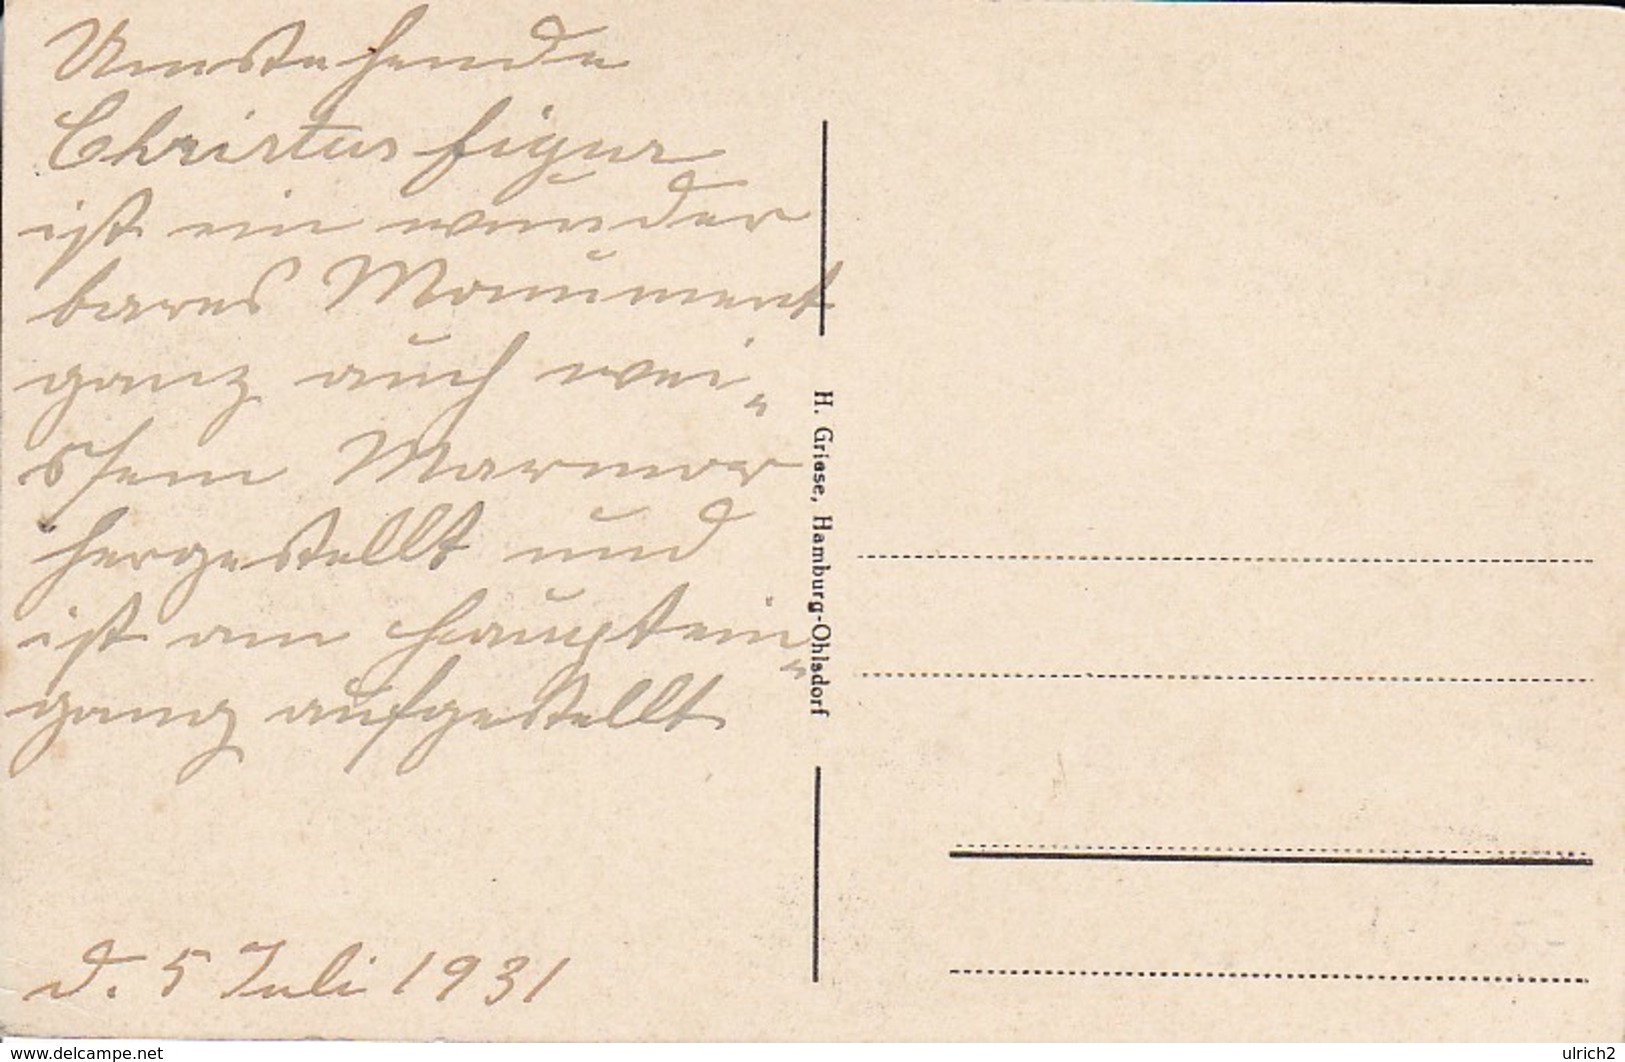 Umstehende
Christus figur
ist ein wunder
bares Monument
ganz auch wei„
ssem Marmor
hergestellt und
ist am Hauptein„
gang aufgestellt
d. 5 Juli 1931
H. Griese, Hamburg-Ohlsdorf
www.delcampe.net
ulrich2